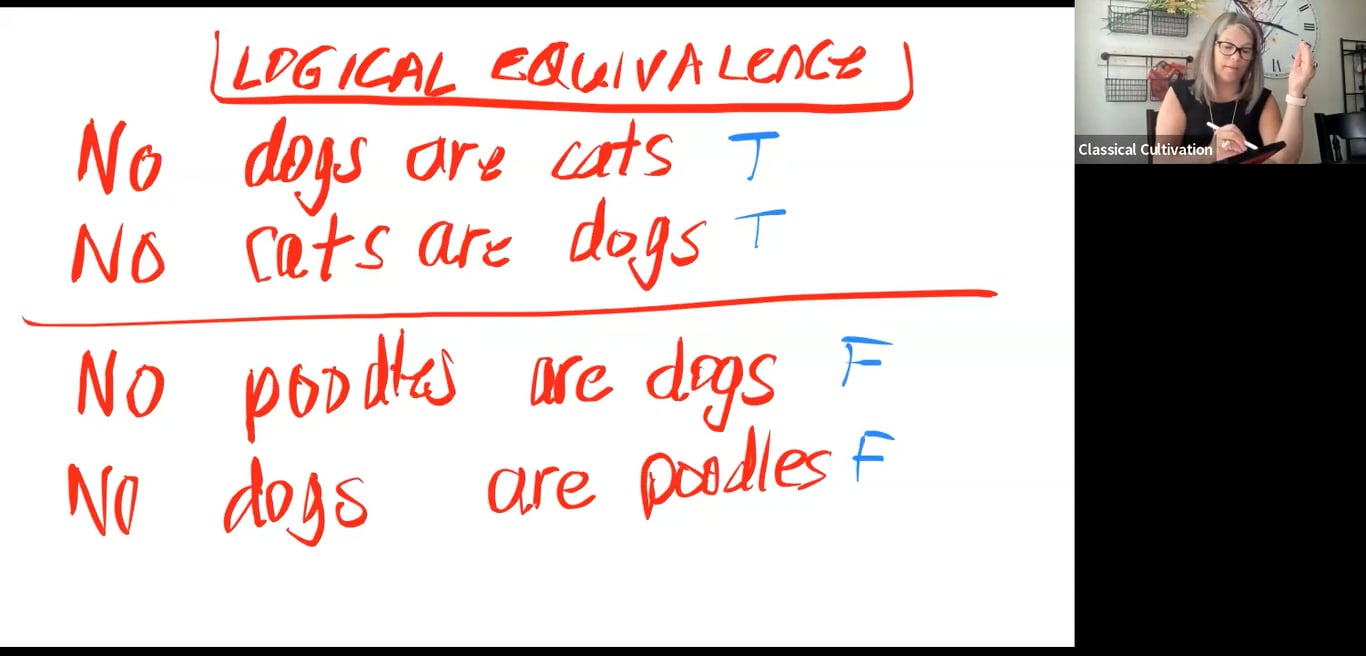 LOGICAL EQUIVALENCE
No dogs are cats T
NO cats are dogs T
NO poodles are dogs F
NO dogs are poodles F
Classical Cultivation